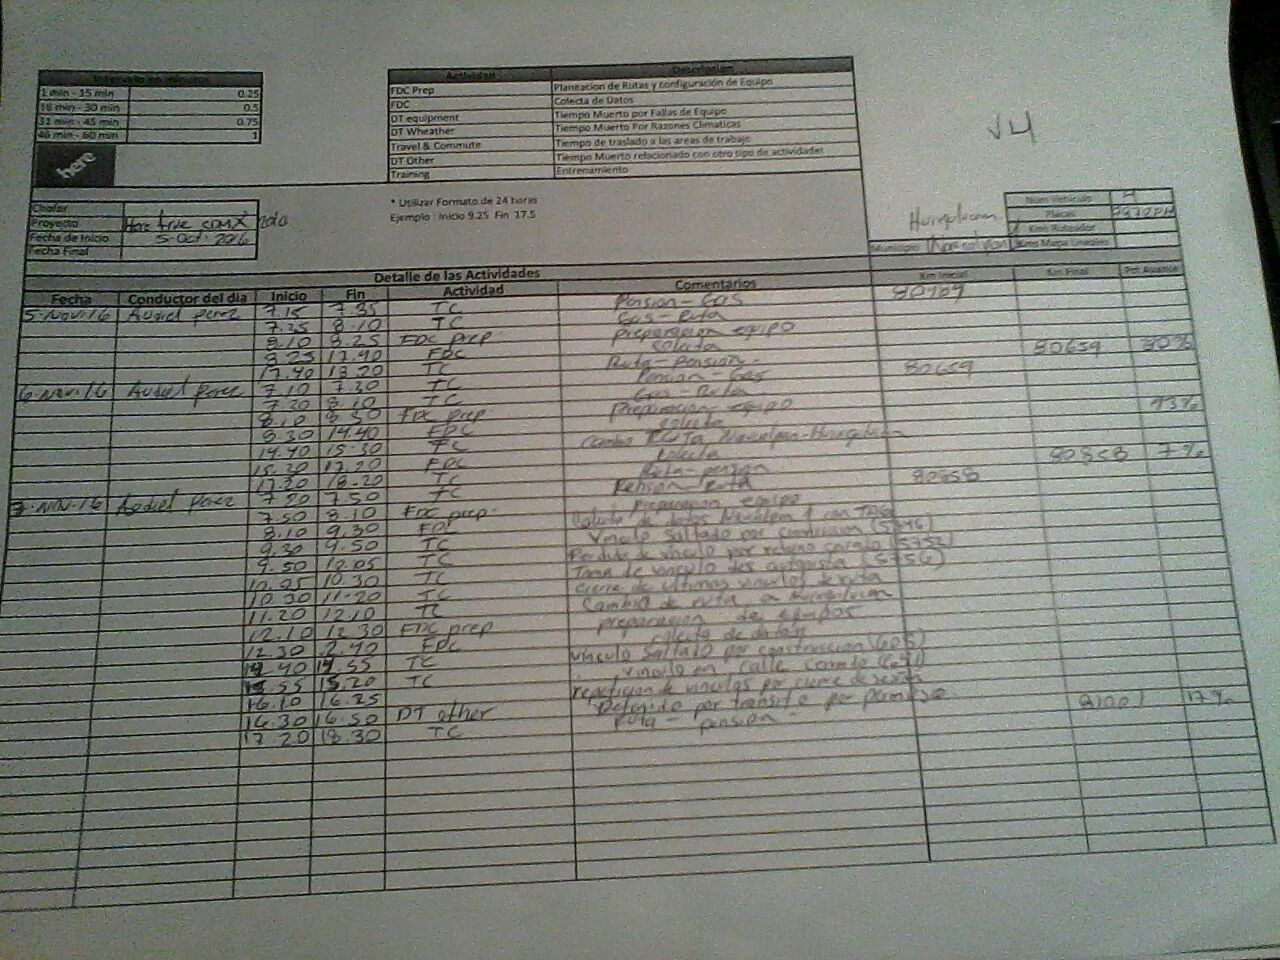 Intervalo en minutos
1 min - 15 min 0.25
16 min - 30 min 0.5
31 min - 45 min 0.75
46 min - 60 min 1
here
Actividad Descripcion
FDC Prep Planeacion de Rutas y configuración de Equipo
FDC Colecta de Datos
DT equipment Tiempo Muerto por Fallas de Equipo
DT Wheather Tiempo Muerto Por Razones Climaticas
Travel & Commute Tiempo de traslado a las areas de trabajo
DT Other Tiempo Muerto relacionado con otro tipo de actividades
Training Entrenamiento
V4
Chofer
Proyecto Here true CDMX 2016
Fecha de Inicio 5-Oct-2016
Fecha Final
* Utilizar Formato de 24 horas
Ejemplo : Inicio 9.25 Fin 17.5
Num Vehiculo 4
Placas
Kms Ruteador
Huixquilucan
Municipio Kms Mapa Lineales
Detalle de las Actividades
Fecha Conductor del dia Inicio Fin Actividad Comentarios Km Inicial Km Final Pct Avance
5-Nov-16 Audiel perez 7.15 7.35 TC Pension - Gas 80489
7.35 8.10 TC Gas - Ruta
8.10 8.25 FDC prep preparacion equipo
8.25 17.40 FDC colecta
17.40 18.20 TC Ruta - pension 80659 30%
6-Nov-16 Audiel perez 7.10 7.30 TC Pension Gas 80659
7.30 8.10 TC Gas - Ruta
8.10 8.30 FDC prep preparacion equipo
8.30 14.40 FDC colecta 93%
14.40 15.30 TC Cambio RUTA
15.30 17.20 FDC colecta
17.30 18.20 TC Ruta - pension 80858 7%
7-Nov-16 Audiel perez 7.20 7.50 TC Pension ruta 80858
7.50 8.10 FDC prep preparacion equipo
8.10 9.30 FDC Colecta de datos
9.30 9.50 TC Vinculo saltado por construccion (5746)
9.50 12.05 TC Perdida de vinculo por retorno cerrado (5752)
10.25 10.30 TC Toma de vinculo des autopista (5756)
10.30 11.20 TC cierre de ultimos vinculos de ruta
11.20 12.10 TC Cambio de ruta a Huixquilucan
12.10 12.30 FDC prep preparacion de equipos
12.30 2.40 FDC colecta de datos
14.40 14.55 TC vinculo saltado por construccion (605)
14.55 15.20 TC vinculo en calle cerrada
16.10 16.25 repeticion de vinculos por cierre de sesion
16.30 16.50 DT other Detenido por transito por permiso
17.20 18.30 TC Ruta - pension 81001 17%